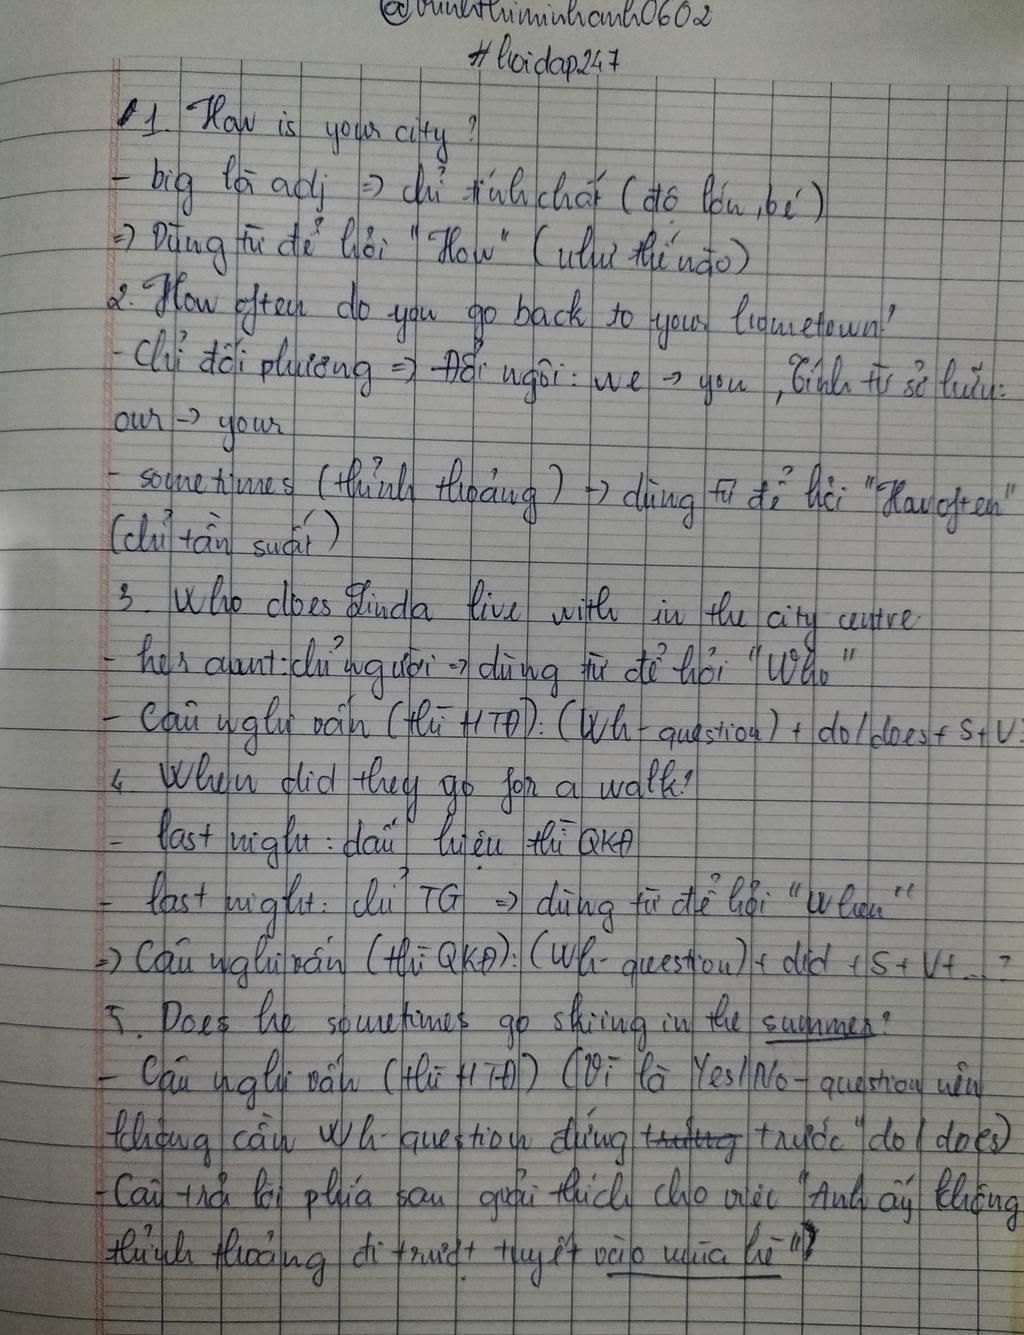 @buinhthiminhanh0602
#hoidap247
1. How is your city?
- big là adj => chỉ tính chất (độ lớn, bé)
=> Dùng từ để hỏi "How" (như thế nào)
2. How often do you go back to your hometown?
- Chỉ đối phương => Đổi ngôi: we -> you, Tính từ sở hữu:
our -> your
- sometimes (thỉnh thoảng) -> dùng từ để hỏi "How often"
(chỉ tần suất)
3. Who does Linda live with in the city centre
- her aunt: chỉ người -> dùng từ để hỏi "Who"
- Câu nghi vấn (thì HTĐ): (Wh-question) + do/does + S + V
4. When did they go for a walk?
- last night: dấu hiệu thì QKĐ
- last night: chỉ TG => dùng từ để hỏi "When"
=> Câu nghi vấn (thì QKĐ): (Wh-question) + did + S + V + ...?
5. Does he sometimes go skiing in the summer?
- Câu nghi vấn (thì HTĐ) (Vì là Yes/No-question nên
không cần Wh-question đứng trước "do/does)
- Câu trả lời phía sau giải thích cho việc "Anh ấy không
thỉnh thoảng đi trượt tuyết vào mùa hè"